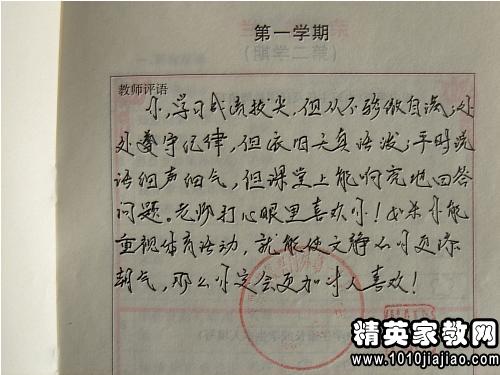 第一学期
教师评语
你,学习成绩拔尖,但从不骄傲自满;处
处遵守纪律,但依旧天真活泼;平时说
语细声细气,但课堂上能响亮地回答
问题。老师打心眼里喜欢你!如果你能
重视体育活动,就能使文静的你更添
朝气,那么你定会更加讨人喜欢!
精英家教网
www.1010jiajiao.com